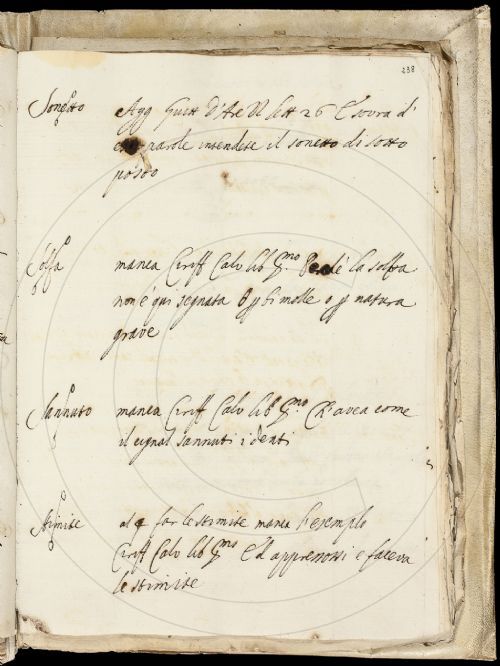 238
Sonetto Agg Guitt d'Ar lett 26 E sovra d'
parole intendete il sonetto di sotto
posto
Solfa manca Ciriff Calv lib pmo la solfa
non è qui segnata p bimolle o p natura
grave
Sannuto manca Ciriff Calv lib pmo Ch'avea come
il cignal sannuti i denti
Stimite al far le stimite manca l'esemplo
Ciriff Calv lib pmo E d'apprenossi e faceva
le stimite